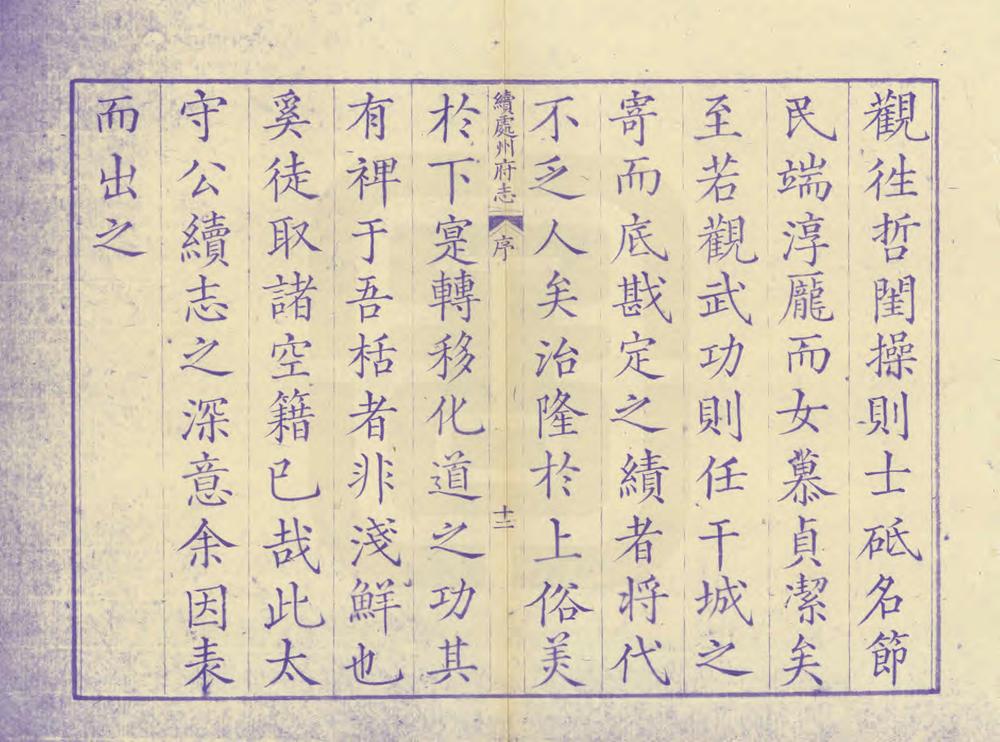 觀徃哲閨操則士砥名節
民端淳厖而女慕貞潔矣
至若觀武功則任干城之
寄而底戡定之績者將代
不乏人矣治隆於上俗美
續處州府志
序
十二
於下寔轉移化道之功其
有裨于吾栝者非淺鮮也
奚徒取諸空籍已哉此太
守公續志之深意余因表
而出之